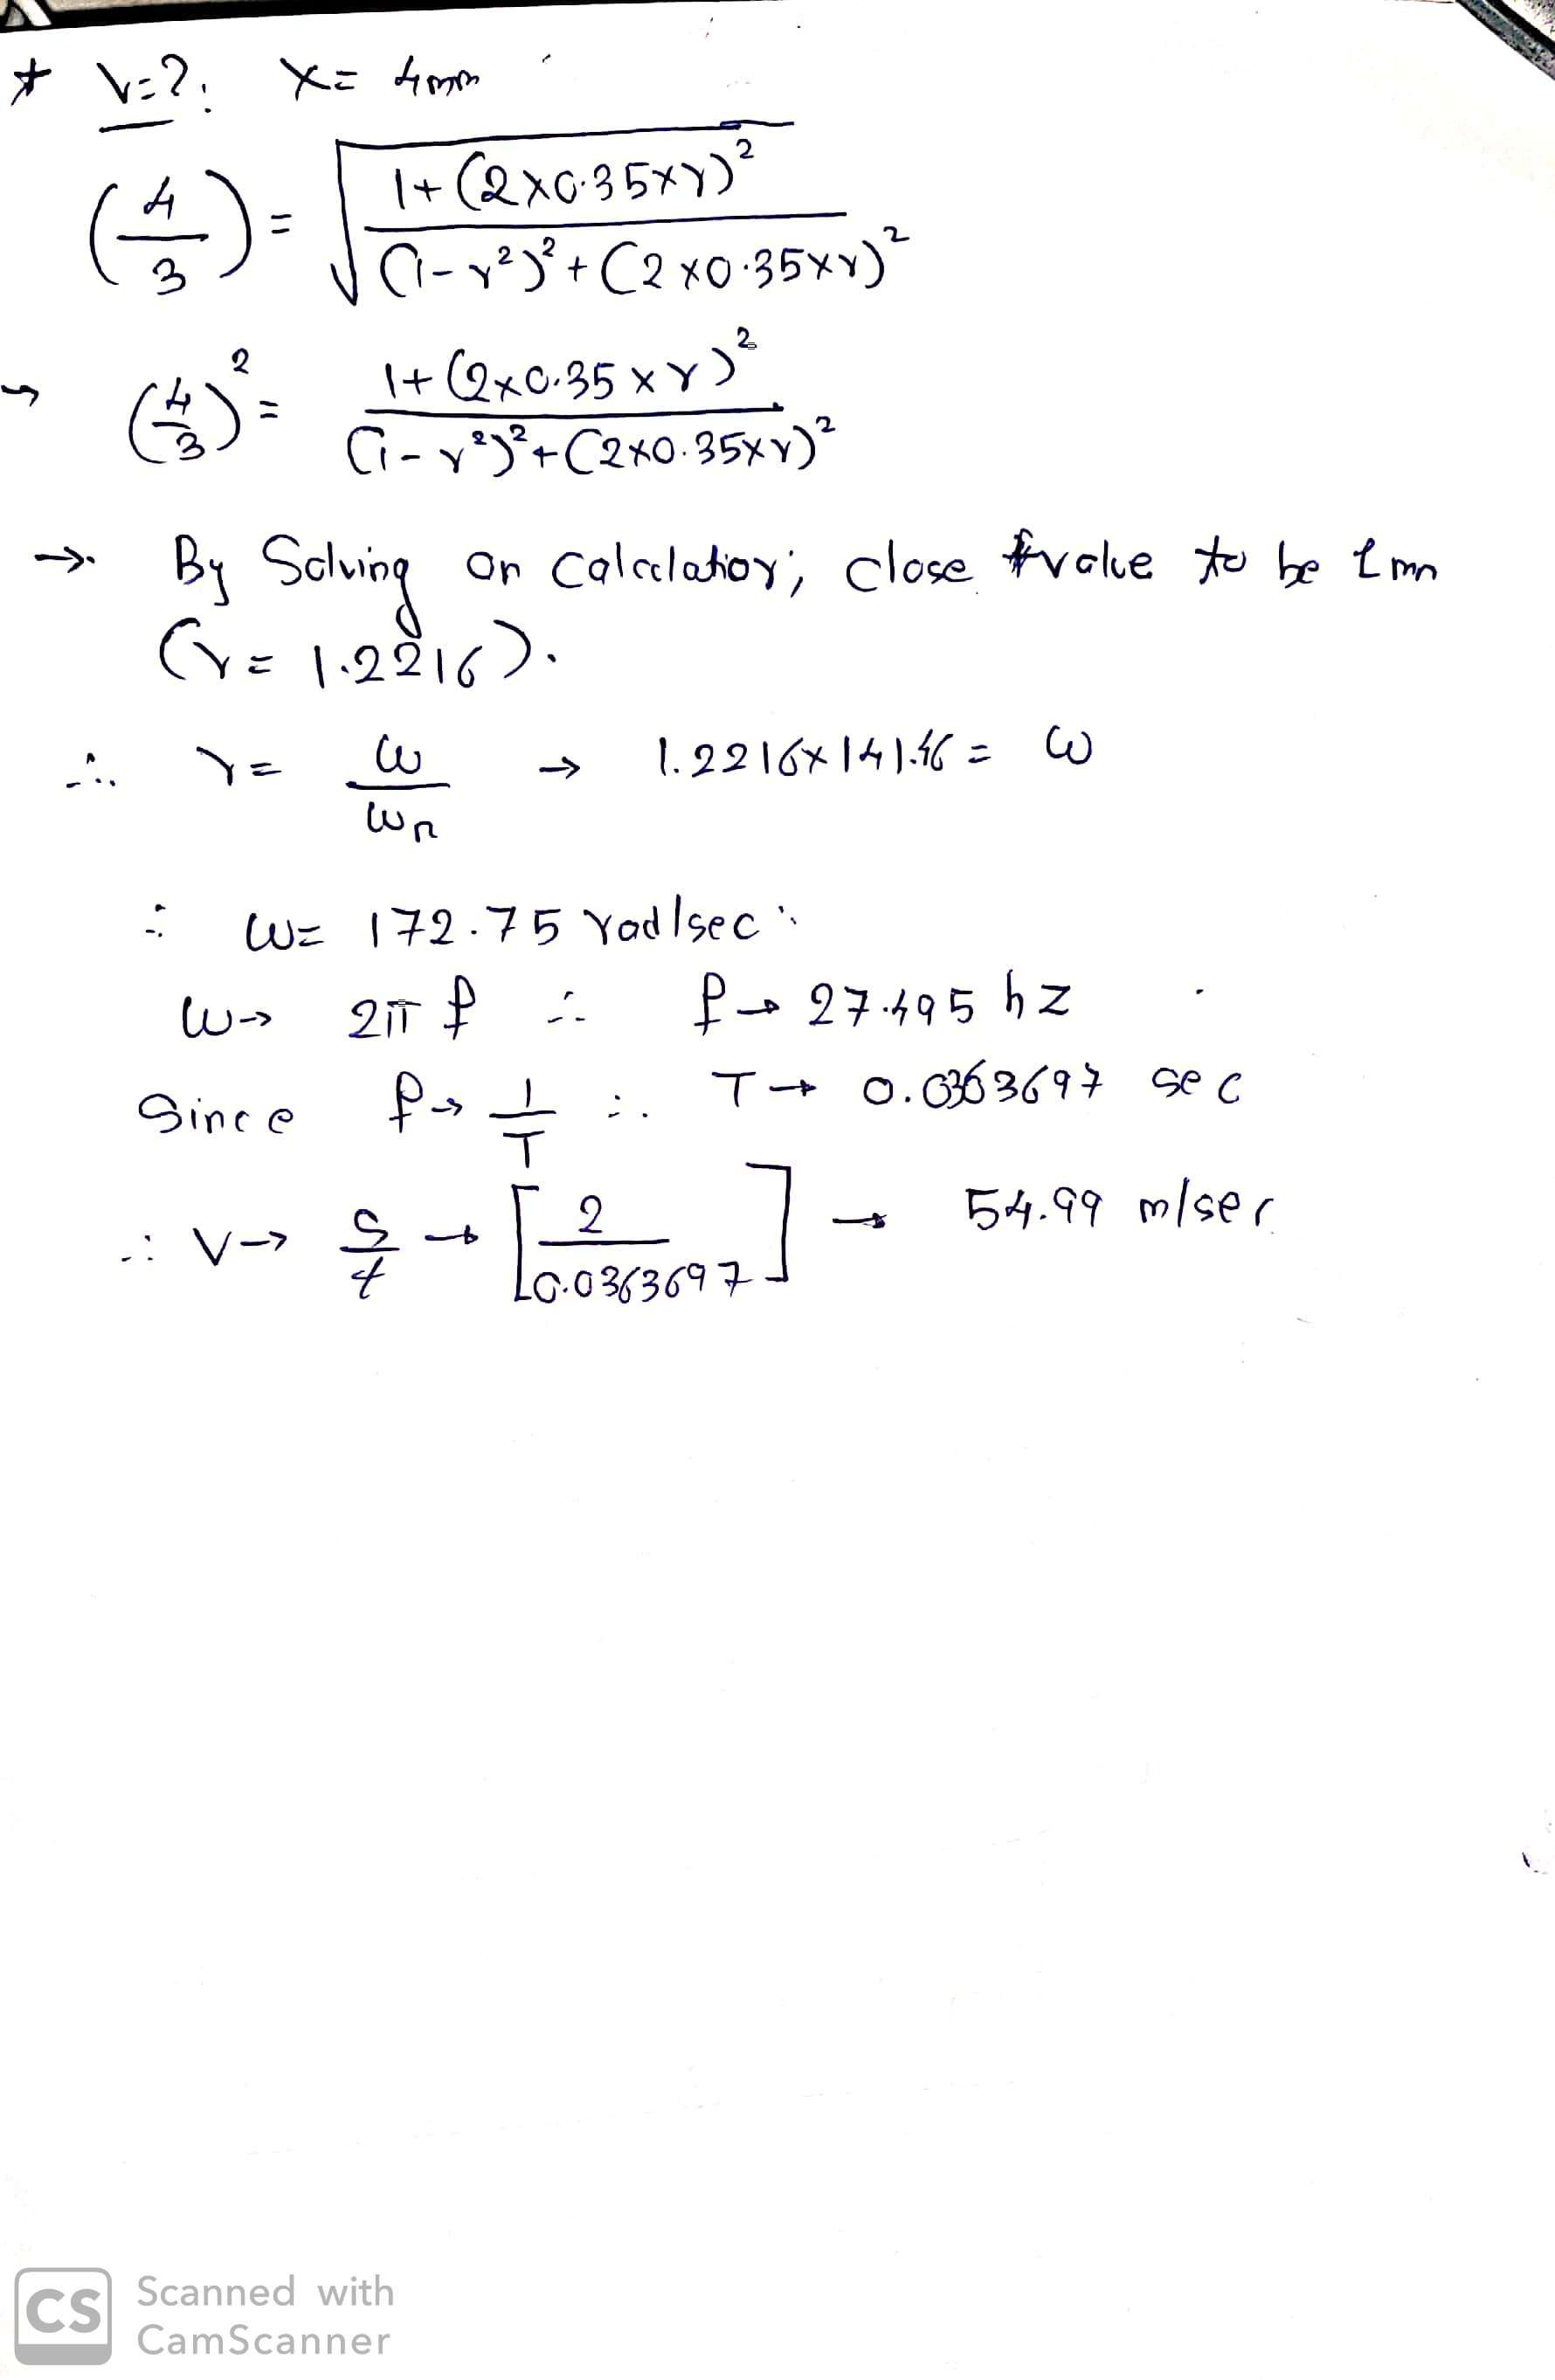 * V=?; X= 4mm
(4/3) = √(1+(2×0.35×r)² / (1-r²)²+(2×0.35×r)²)
→ (4/3)² = 1+(2×0.35×r)² / (1-r²)²+(2×0.35×r)²
→ By Solving on calculation; close value to be
(r= 1.2216).
∴ r= ω/ωn → 1.2216×141.46= ω
∴ ω= 172.75 rad/sec
ω→ 2π f ∴ f→ 27.495 hz
Since f→ 1/T ∴ T→ 0.0363697 sec
∴ V→ S/t → [2/0.0363697] → 54.99 m/sec
CS Scanned with
CamScanner